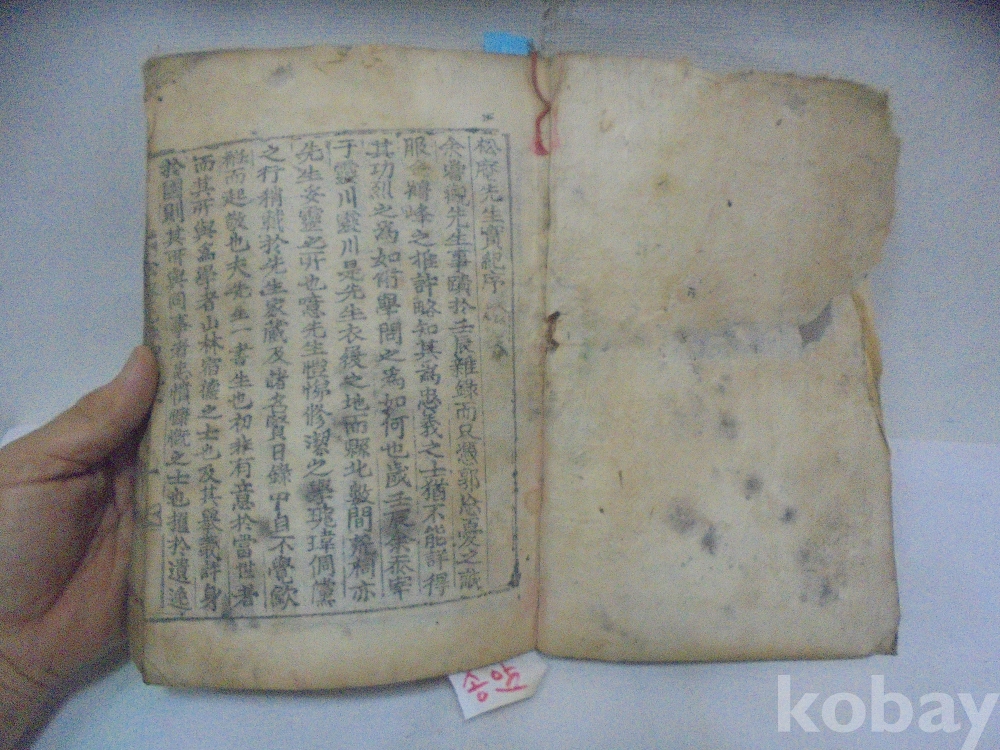 松庵先生實紀序
余嘗觀先生事蹟於壬辰雜錄而只憑郭忘憂之識
服金鶴峰之推許略知其為忠義之士猶不能詳得
其功烈之為如何學問之為如何也歲壬辰余忝宰
于靈川靈川是先生衣後之地而縣北數間荒祠亦
先生妥靈之所也噫先生愷悌修潔之學瑰瑋倜儻
之行稍藉於先生家藏及諸名賢日錄中自不覺歛
衽而起敬也夫先生一書生也初非有意於當世者
而其所與為學者山林宿德之士也及其舉義許身
於國則其所與同事者忠憤慷慨之士也擢於遺逸
송암
kobay